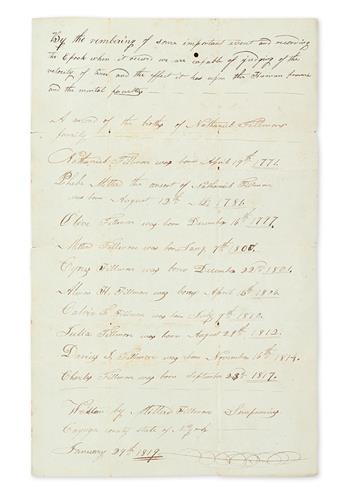 By the rembering of some important event and recording
the Epoch when it occured we are capable of judging of the
velocity of time and the effect it has upon the Human frame
and the mental faculties
A record of the births of Nathaniel Fillmores
family
Nathaniel Fillmore was born April 19th 1771.
Phebe Millard the consort of Nathaniel Fillmore
was born August 12th 1781.
Olive Fillmore was born December 16th 1797.
Millard Fillmore was born Jany 7th 1800.
Cyrus Fillmore was born December 22nd 1801.
Almon H. Fillmore was born April 13th 1806
Calvin T. Fillmore was born July 9th 1810.
Julia Fillmore was born August 29th 1812.
Darius I. Fillmore was born November 16th 1814.
Charles Fillmore was born September 23th 1817.
Written by Millard Fillmore Sempronius
Cayuga county state of N York
January 29th 1819